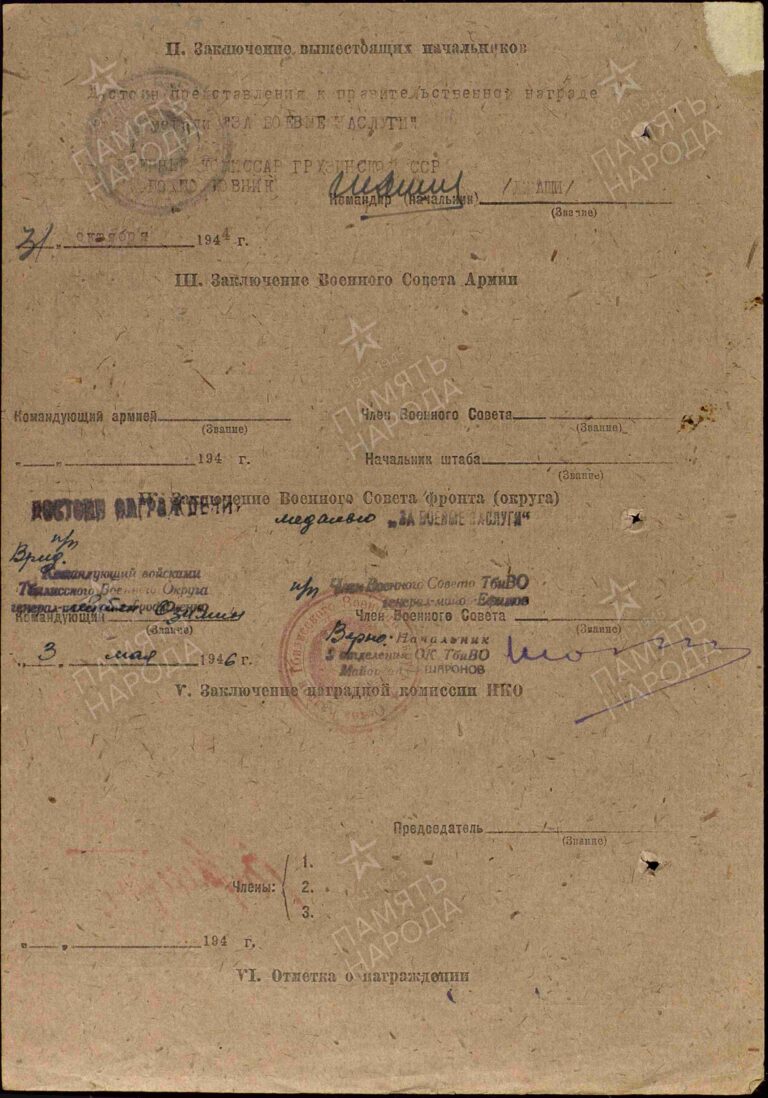 II. Заключение вышестоящих начальников
Достоин представления к правительственной награде
медали "ЗА БОЕВЫЕ ЗАСЛУГИ"
КОМИССАР ГРУЗИНСКОЙ ССР
ПОДПОЛКОВНИК
Командир (начальник)
(Звание)
31 " октября 1944 г.
III. Заключение Военного Совета Армии
Командующий армией
(Звание)
Член Военного Совета
(Звание)
" " 194 г.
Начальник штаба
(Звание)
IV. Заключение Военного Совета фронта (округа)
ДОСТОИН НАГРАЖДЕНИЯ
медалью „ЗА БОЕВЫЕ ЗАСЛУГИ"
п/п
Врид.
Командующий войсками
Тбилисского Военного Округа
п/п Член Военного Совета ТбиВО
генерал-майор Ефимов
Командующий
(Звание)
Член Военного Совета
(Звание)
Верно: Начальник
3 отделения ОК ТбиВО
Майор ШАРОНОВ
" 3 " мая 1946 г.
V. Заключение наградной комиссии НКО
Председатель
(Звание)
Члены:
1.
2.
3.
" " 194 г.
VI. Отметка о награждении
ПАМЯТЬ НАРОДА
ПАМЯТЬ НАРОДА
ПАМЯТЬ НАРОДА
ПАМЯТЬ НАРОДА
ПАМЯТЬ НАРОДА
ПАМЯТЬ НАРОДА